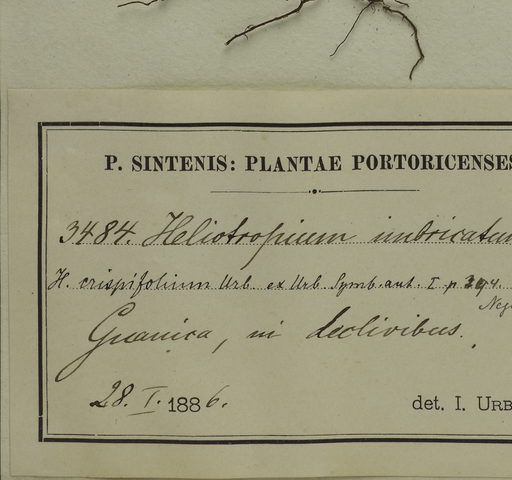 P. SINTENIS: PLANTAE PORTORICENSES
3484. Heliotropium imbricatum
H. crispifolium Urb. ex Urb. Symb. ant. I. p. 394.
Guanica, in declivibus.
28. I. 1886.
det. I. URB